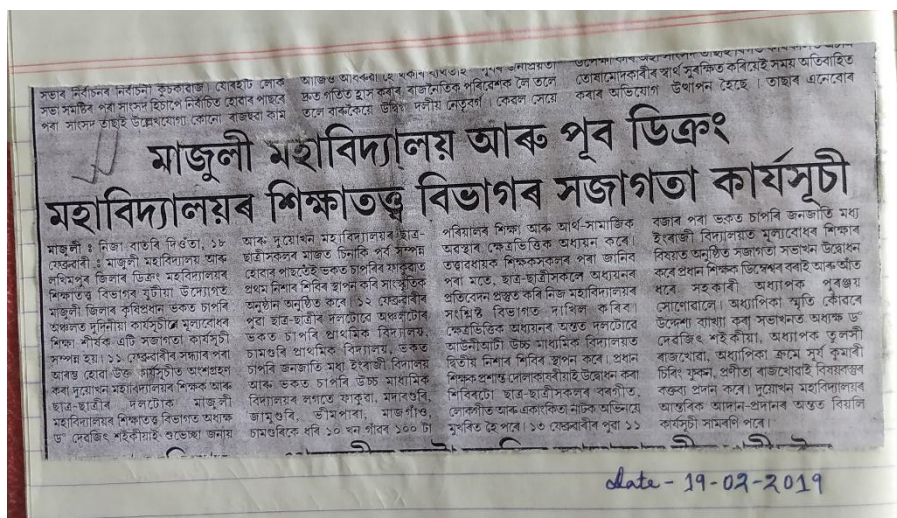 সভাৰ নিৰ্বাচনৰ নিৰ্বাচনী
সভা সমষ্টিৰ পৰা সাংসদ হিচাপে নিৰ্বাচিত হোৱাৰ পাছৰে
পৰা সাংসদ উল্লেখযোগ্য কোনো
দ্ৰুত গতিত হ্ৰাস কৰাৰ ৰাজনৈতিক পৰিবেশক লৈ তলে
তলে বাৰুকৈয়ে উদ্বিগ্ন দলীয় নেতৃবৰ্গ। কেৱল সেয়ে
তোষামোদকাৰীৰ স্বাৰ্থ সুৰক্ষিত কৰিয়েই সময় অতিবাহিত
কৰাৰ অভিযোগ উত্থাপন হৈছে। তাহাৰ এনেবোৰ
মাজুলী মহাবিদ্যালয় আৰু পূব ডিক্ৰং
মহাবিদ্যালয়ৰ শিক্ষাতত্ত্ব বিভাগৰ সজাগতা কাৰ্যসূচী
মাজুলী : নিজা বাতৰি দিওঁতা, ১৮
ফেব্ৰুৱাৰী : মাজুলী মহাবিদ্যালয় আৰু
লখিমপুৰ জিলাৰ ডিক্ৰং মহাবিদ্যালয়ৰ
শিক্ষাতত্ত্ব বিভাগৰ যুটীয়া উদ্যোগত
মাজুলী জিলাৰ কৃষিপ্ৰধান ভকত চাপৰি
অঞ্চলত দুদিনীয়া কাৰ্যসূচীৰে মূল্যবোধৰ
শিক্ষা শীৰ্ষক এটি সজাগতা কাৰ্যসূচী
সম্পন্ন হয়। ১১ ফেব্ৰুৱাৰীৰ সন্ধ্যাৰ পৰা
আৰম্ভ হোৱা উক্ত কাৰ্যসূচীত অংশগ্ৰহণ
কৰা দুয়োখন মহাবিদ্যালয়ৰ শিক্ষক আৰু
ছাত্ৰ-ছাত্ৰীৰ দলটোক মাজুলী
মহাবিদ্যালয়ৰ শিক্ষাতত্ত্ব বিভাগত অধ্যক্ষ
ড° দেবজিৎ শইকীয়াই শুভেচ্ছা জনায়
আৰু দুয়োখন মহাবিদ্যালয়ৰ ছাত্ৰ-
ছাত্ৰীসকলৰ মাজত চিনাকি পৰ্ব সম্পন্ন
হোৱাৰ পাছতেই ভকত চাপৰিৰ ফাকুৱাত
প্ৰথম নিশাৰ শিবিৰ স্থাপন কৰি সাংস্কৃতিক
অনুষ্ঠান অনুষ্ঠিত কৰে। ১২ ফেব্ৰুৱাৰীৰ
পুৱা ছাত্ৰ-ছাত্ৰীৰ দলটোৱে অঞ্চলটোৰ
ভকত চাপৰি প্ৰাথমিক বিদ্যালয়,
চামগুৰি প্ৰাথমিক বিদ্যালয়, ভকত
চাপৰি জনজাতি মধ্য ইংৰাজী বিদ্যালয়
আৰু ভকত চাপৰি উচ্চ মাধ্যমিক
বিদ্যালয়ৰ লগতে ফাকুৱা, মদাৰগুৰি,
জামুগুৰি, ভীমপাৰা, মাজগাঁও,
চামগুৰিকে ধৰি ১০ খন গাঁৱৰ ১০০ টা
পৰিয়ালৰ শিক্ষা আৰু আৰ্থ-সামাজিক
অৱস্থাৰ ক্ষেত্ৰভিত্তিক অধ্যয়ন কৰে।
তত্ত্বাৱধায়ক শিক্ষকসকলৰ পৰা জানিব
পৰা মতে, ছাত্ৰ-ছাত্ৰীসকলে অধ্যয়নৰ
প্ৰতিবেদন প্ৰস্তুত কৰি নিজ মহাবিদ্যালয়ৰ
সংশ্লিষ্ট বিভাগত দাখিল কৰিব।
ক্ষেত্ৰভিত্তিক অধ্যয়নৰ অন্তত দলটোৱে
আউনীআটী উচ্চ মাধ্যমিক বিদ্যালয়ত
দ্বিতীয় নিশাৰ শিবিৰ স্থাপন কৰে। প্ৰধান
শিক্ষক প্ৰশান্ত দোলাকাষৰীয়াই উদ্বোধন কৰা
শিবিৰটো ছাত্ৰ-ছাত্ৰীসকলৰ বৰগীত,
লোকগীত আৰু একাংকিকা নাটক অভিনয়ে
মুখৰিত হৈ পৰে। ১৩ ফেব্ৰুৱাৰীৰ পুৱা ১১
বজাৰ পৰা ভকত চাপৰি জনজাতি মধ্য
ইংৰাজী বিদ্যালয়ত মূল্যবোধৰ শিক্ষাৰ
বিষয়ত অনুষ্ঠিত সজাগতা সভাখন উদ্বোধন
কৰে প্ৰধান শিক্ষক ডিম্বেশ্বৰ বৰাই আৰু আঁত
ধৰে সহকাৰী অধ্যাপক পুৰঞ্জয়
সোণোৱালে। অধ্যাপিকা স্মৃতি কোঁৱৰে
উদ্দেশ্য ব্যাখ্যা কৰা সভাখনত অধ্যক্ষ ড°
দেবজিৎ শইকীয়া, অধ্যাপক তুলসী
ৰাজখোৱা, অধ্যাপিকা ক্ৰমে সূৰ্য কুমাৰী
চিৰিং ফুকন, প্ৰণীতা ৰাজখোৱাই বিষয়বস্তুৰ
বক্তৃতা প্ৰদান কৰে। দুয়োখন মহাবিদ্যালয়ৰ
আন্তৰিক আদান-প্ৰদানৰ অন্তত বিয়লি
কাৰ্যসূচী সামৰণি পৰে।
date - 19-02-2019